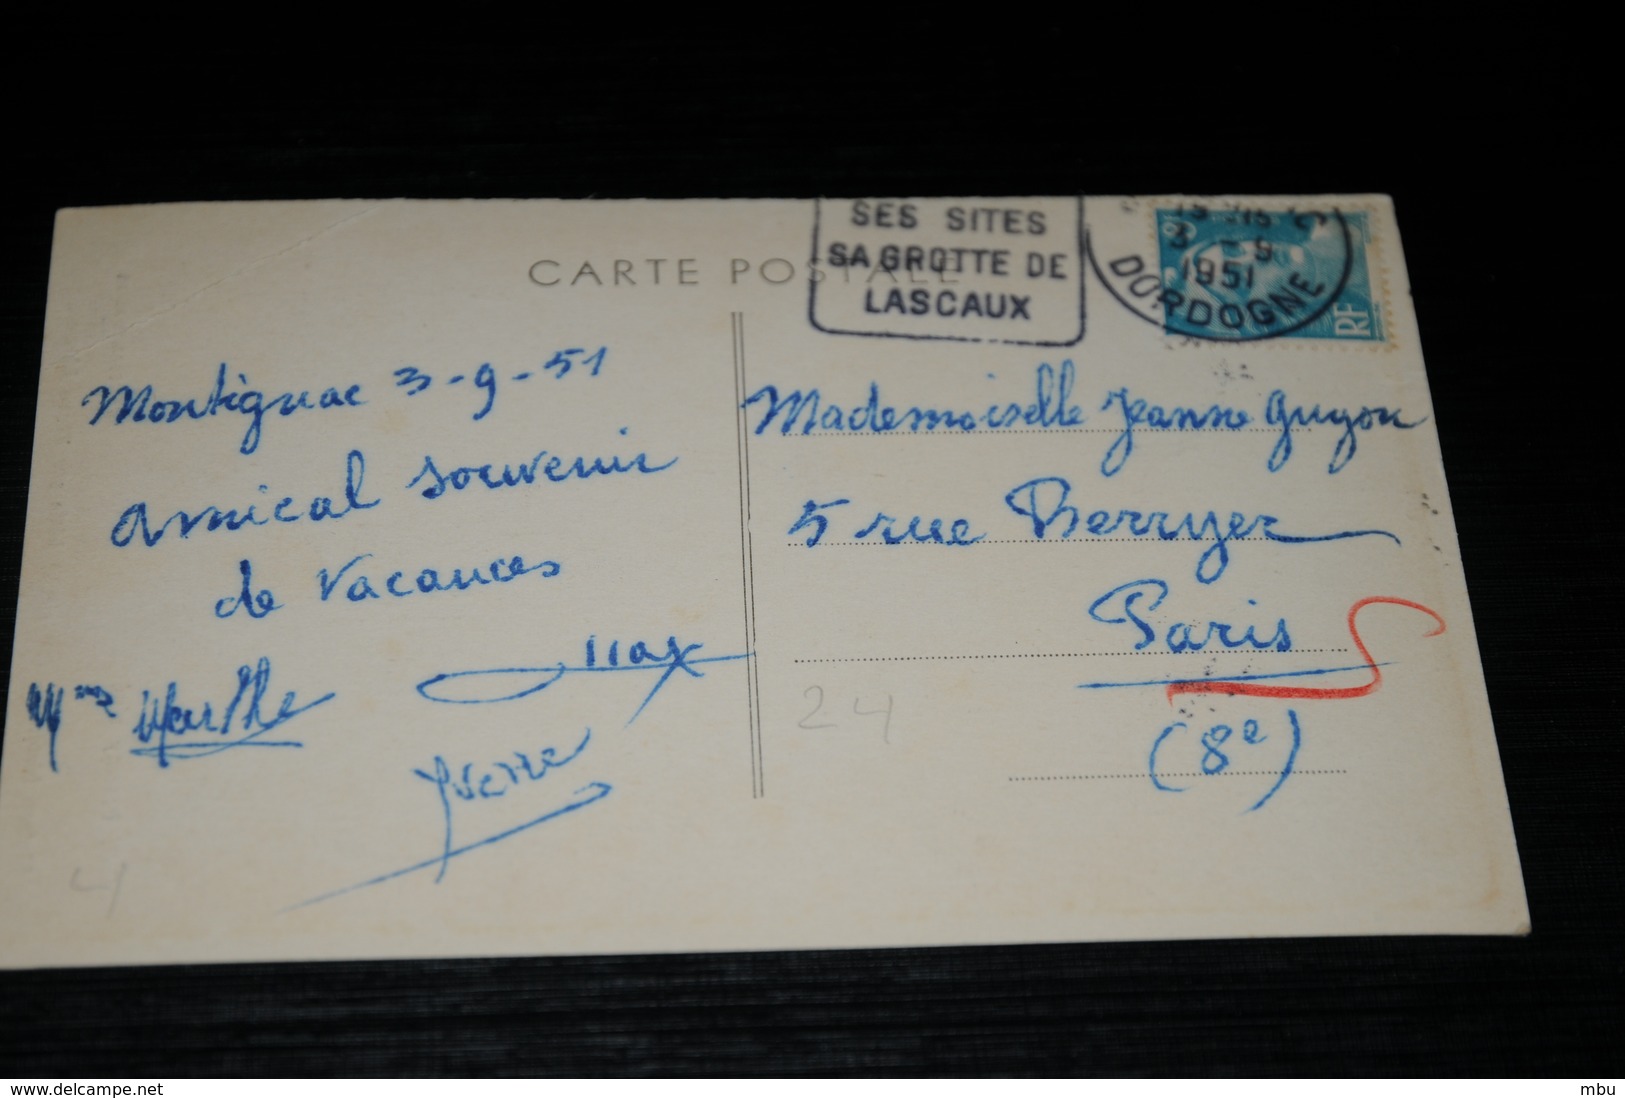 CARTE POSTALE
SES SITES
SA GROTTE DE
LASCAUX
3 - 9
1951
DORDOGNE
RF
Montignac 3-9-51
Amical souvenir
de Vacances
Marthe
Max
Yvette
Mademoiselle Jeanne Guyon
5 rue Berryer
Paris
(8e)
24
4
www.delcampe.net
mbu